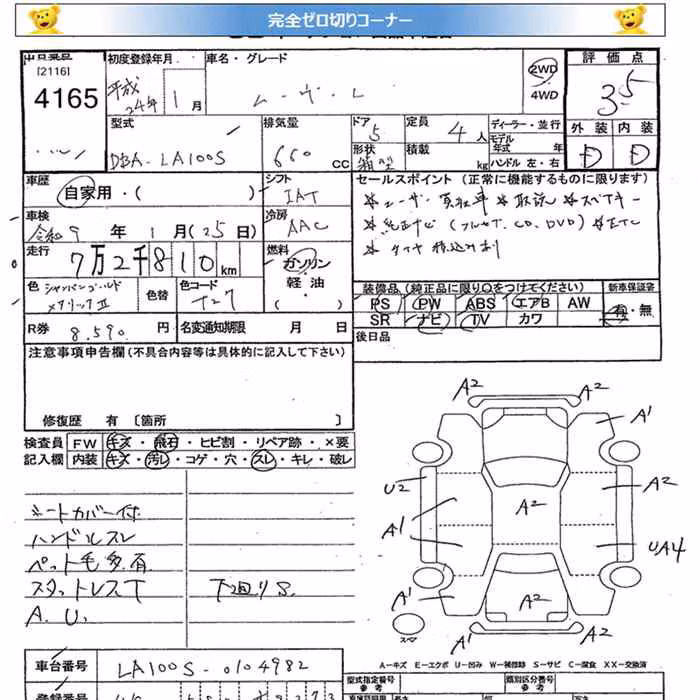 完全ゼロ切りコーナー
出品番号 初度登録年月 車名・グレード 評価点
[2116]
4165 平成24年 1月 ムーヴ L 2WD 4WD 3.5
外装 内装
D D
型式 排気量 ドア 5 定員 4人 ディーラー・並行
DBA-LA100S 660 CC 形状 箱型 積載 kg モデル年式 年
ハンドル 左・右
車歴 シフト セールスポイント(正常に機能するものに限ります)
自家用・( ) IAT
車検 冷房 AAC
令和9年 1月(25日)
*ユーザー買取車 *取説 *スペアキー
*純正ナビ(フルセグ, CD, DVD) *ETC
*タイヤ積込み有
走行 燃料
7万2千810km ガソリン 軽油 ( )
色 シャンパンゴールドメタリックⅡ 色替 色コード T27
装備品(純正品に限り○をつけてください) 新車保証書
PS PW ABS エアB AW 有・無
SR ナビ TV カワ
R券 8,590円 名変通知期限 月 日
後日品
注意事項申告欄(不具合内容等は具体的に記入して下さい)
修復歴 有 〔箇所 〕
検査員 FW キズ・飛石・ヒビ割・リペア跡・×要
記入欄 内装 キズ・汚レ・コゲ・穴・スレ・キレ・破レ
シートカバー付
ハンドルスレ
ペット毛多有
スタットレスT 下廻りS.
A.U.
A2 A2
A1
U2 A2
A2
A1 UA4
A1 A2 A1
スペア
A2
A-キズ E-エクボ U-凹み W-補修跡 S-サビ C-腐食 XX-交換済
車台番号 LA100S-0104982
型式指定番号 参考 類別区分番号 参考
登録番号